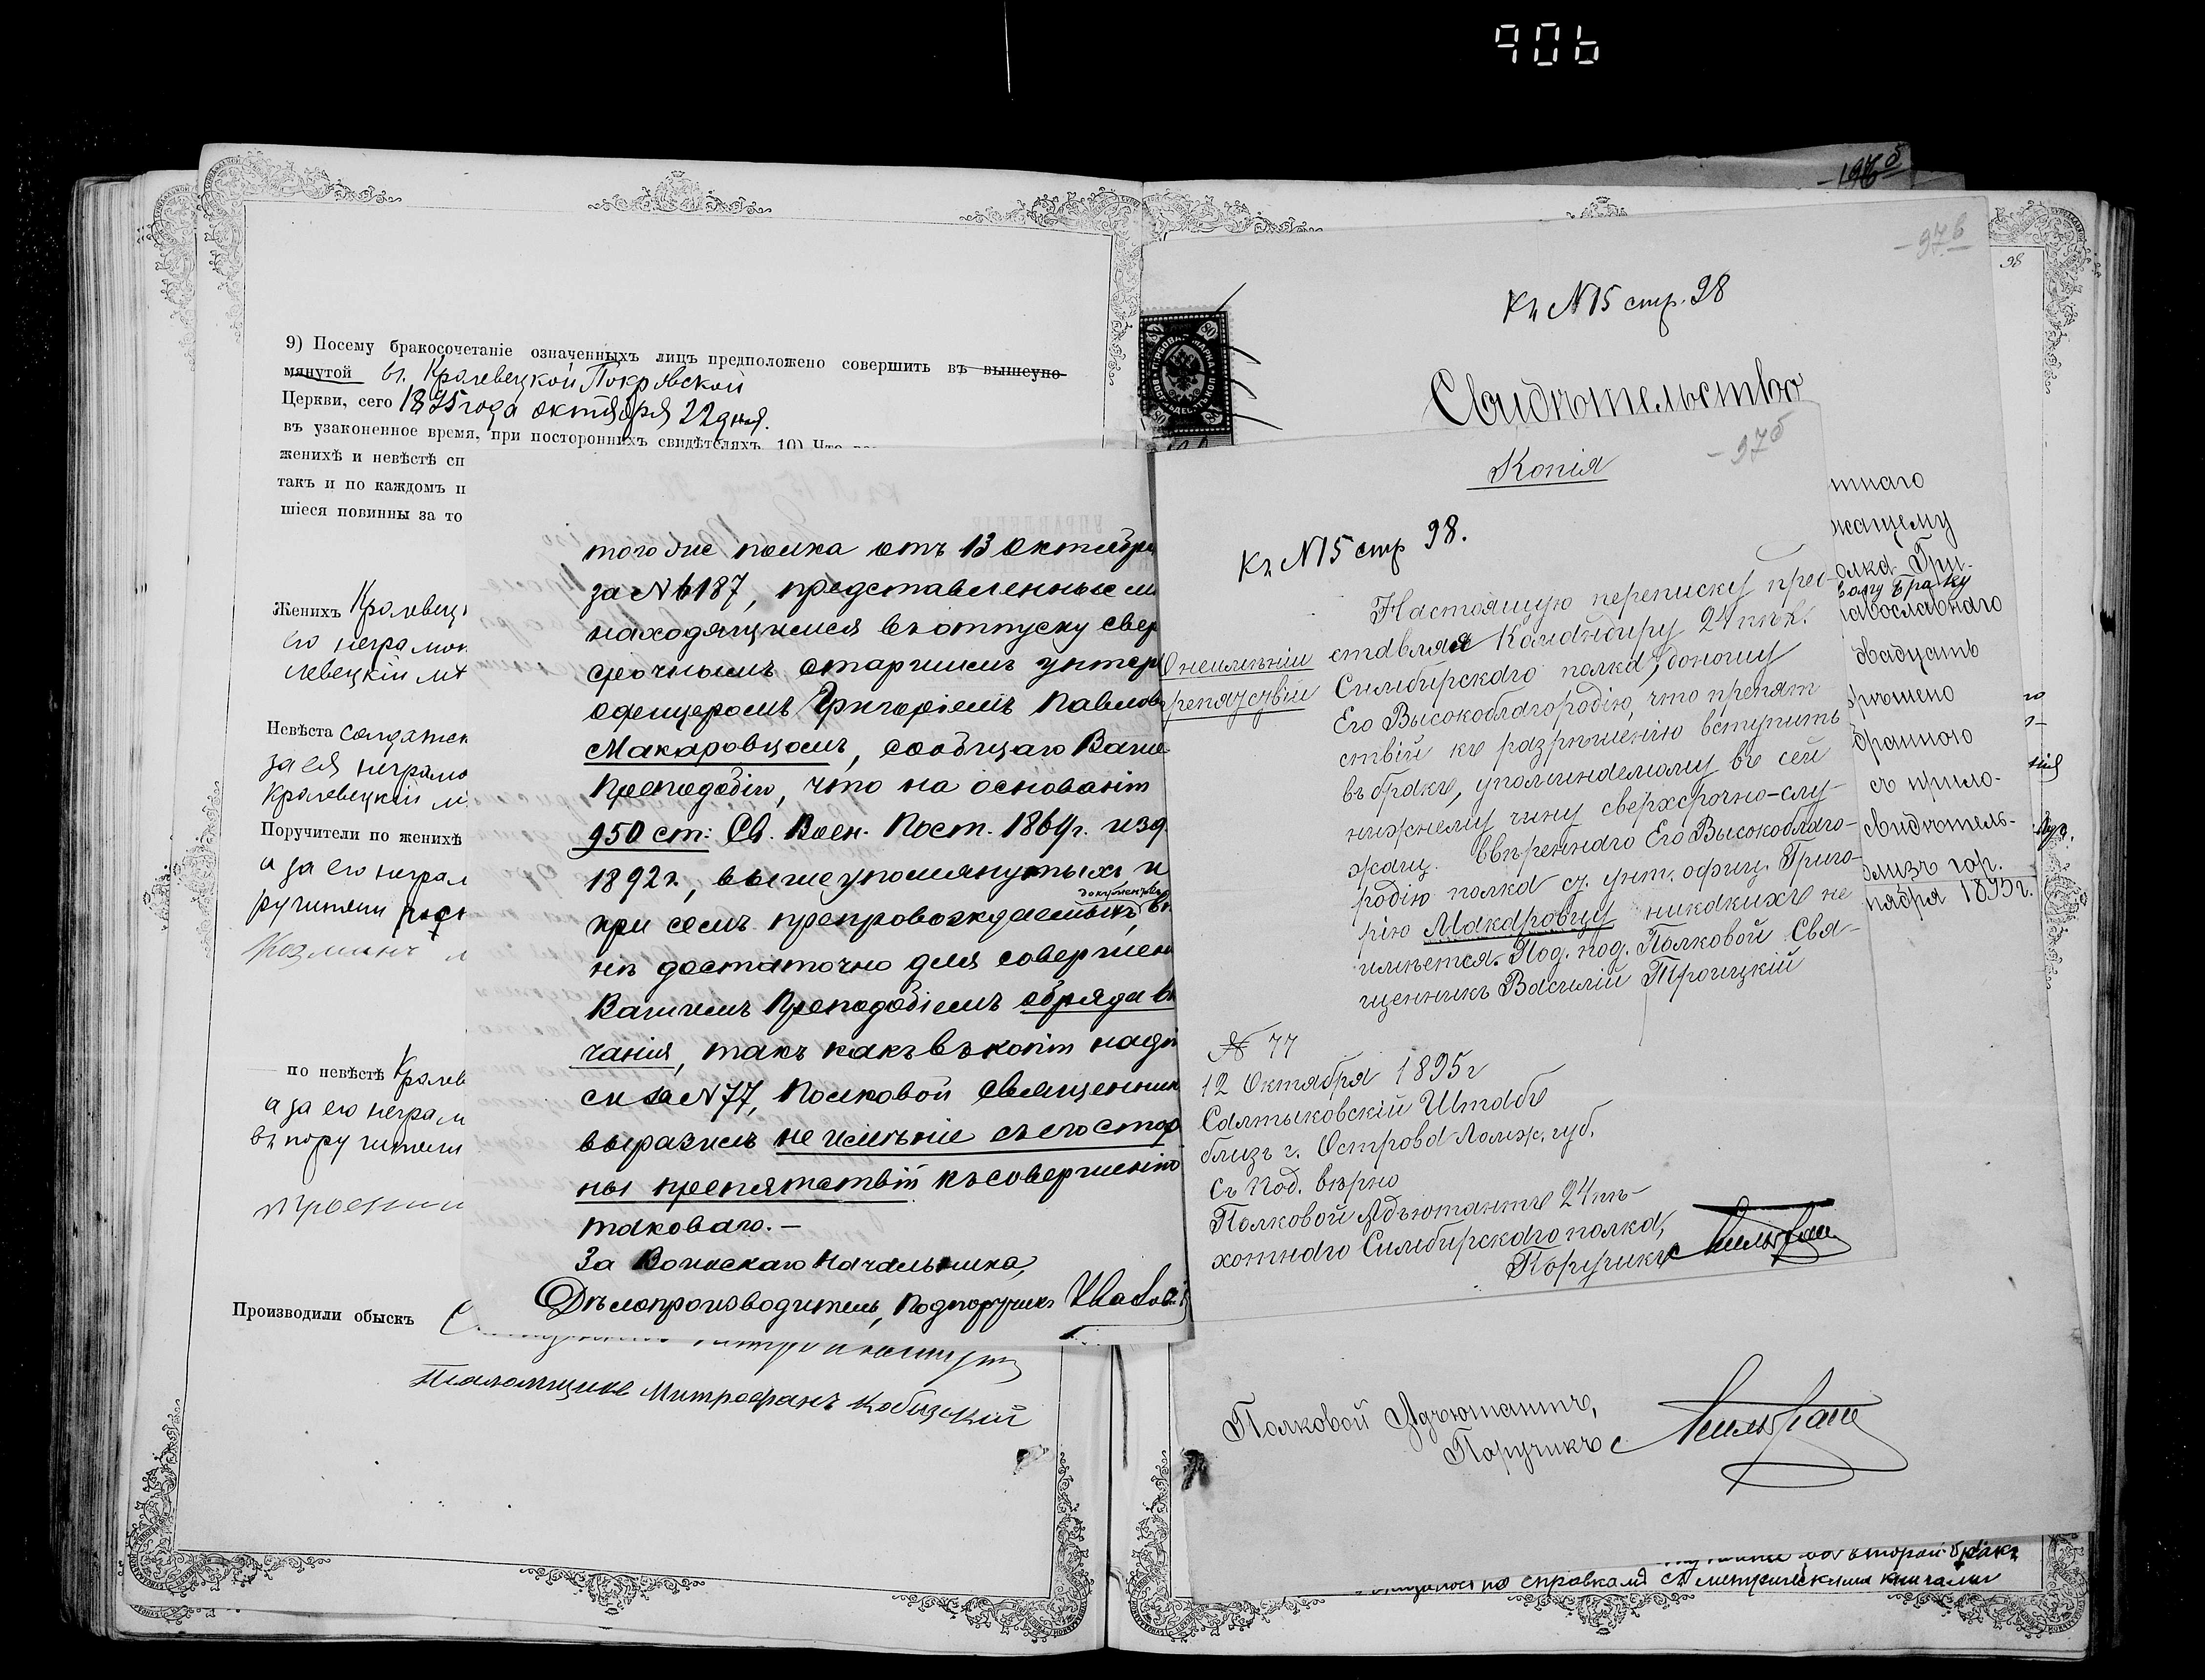 906
9) Посему бракосочетаніе означенныхъ лицъ предположено совершить въ вышеупо-
мянутой въ Кролевецкой Покровской
Церкви, сего 1895 года октября 22 дня.
въ узаконенное время, при постороннихъ свидѣтеляхъ. 10) Что
женихѣ и невѣстѣ сп
такъ и по каждомъ п
шіеся повинны за то
Женихъ Кролевец
его неграмот
левецкій мѣ
Невѣста солдатск
за ея неграмо
Кролевецкій мѣ
Поручители по женихѣ
а за его неграм
ручители
Козминъ
по невѣстѣ Кролев
а за его неграм
въ поручители
Производили обыскъ
Псаломщикъ Митрофанъ Кобизскій
того же полка отъ 13 Октября
за № 6187, представленные
находящимся въ отпуску свер
срочнымъ старшимъ унтер
офицеромъ Григоріемъ Павлов
Макаровцомъ, сообщаю Ваше
Преподобію, что на основаніи
950 ст: Св. Воен. Пост. 1869 г. изд.
1892 г., вышеупомянутыхъ и
документовъ
при семъ препровождаемыхъ, в
нѣ достаточно для совершен
Вашимъ Преподобіемъ обряда вѣ
чанія, такъ какъ въ копіи надп
си за № 77, Полковой Священник
выразилъ не имѣніе съ его сторо
ны препятствій къ совершенію
таковаго. —
За Воинскаго Начальника,
Дѣлопроизводитель, Подпоручикъ
197б
97в
98
Къ №15 стр. 98
Свидѣтельство
тнаго
жащему
олка Гри-
вому браку
авославнаго
двадцать
рѣшено
бранною
съ прило-
свидѣтель-
близъ гор.
нября 1895 г.
97б
Копія
Къ №15 стр 98.
О неимѣніи
репятствій
Настоящую переписку пред-
ставляя Командиру 24 пѣх.
Симбирскаго полка, доношу
Его Высокоблагородію, что препят
ствій къ разрѣшенію вступить
въ бракъ, упоминаемому въ сей
нижнему чину сверхсрочно-слу-
жащ. ввѣреннаго Его Высокоблаго-
родію полка ст. унт. офиц. Григо-
рію Макаровцу никакихъ не
имѣется. Под. под. Полковой Свя-
щенникъ Василій Троицкій
№ 77
12 Октября 1895 г
Салтыковскій Штабъ
близъ г. Острова Ломж. губ.
Съ под. вѣрно
Полковой Адъютантъ 24 пѣ-
хотнаго Симбирскаго полка,
Поручикъ
Полковой Адъютантъ,
Поручикъ
во второй бракъ
по справкамъ съ метрическими книгами